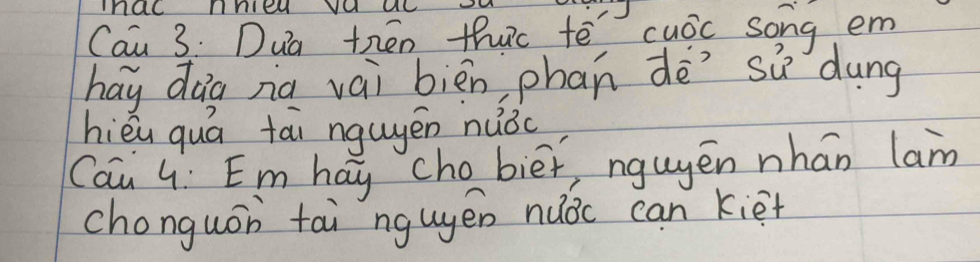 thác nhiều và
Câu 3: Dựa trên thực tế cuộc sống em
hãy đưa ra vài biện phán để sử dụng
hiệu quả tài nguyên nước
Câu 4: Em hãy cho biết, nguyên nhân làm
cho nguồn tài nguyên nước cạn kiệt